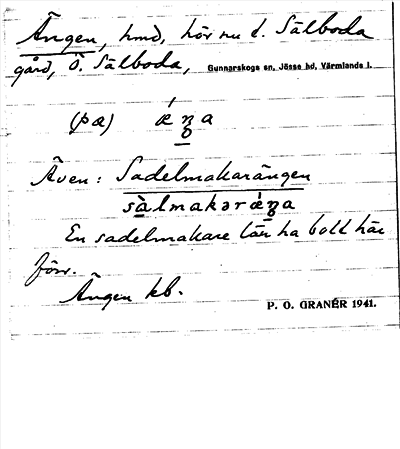 Ängen, hmd, hör nu t. Sälboda
gård, Ö. Sälboda, Gunnarskogs sn, Jösse hd, Värmlands l.
(på)
Även: Sadelmakarängen
En sadelmakare lär ha bott här
förr.
Ängen kb.
P. O. GRANÉR 1941.